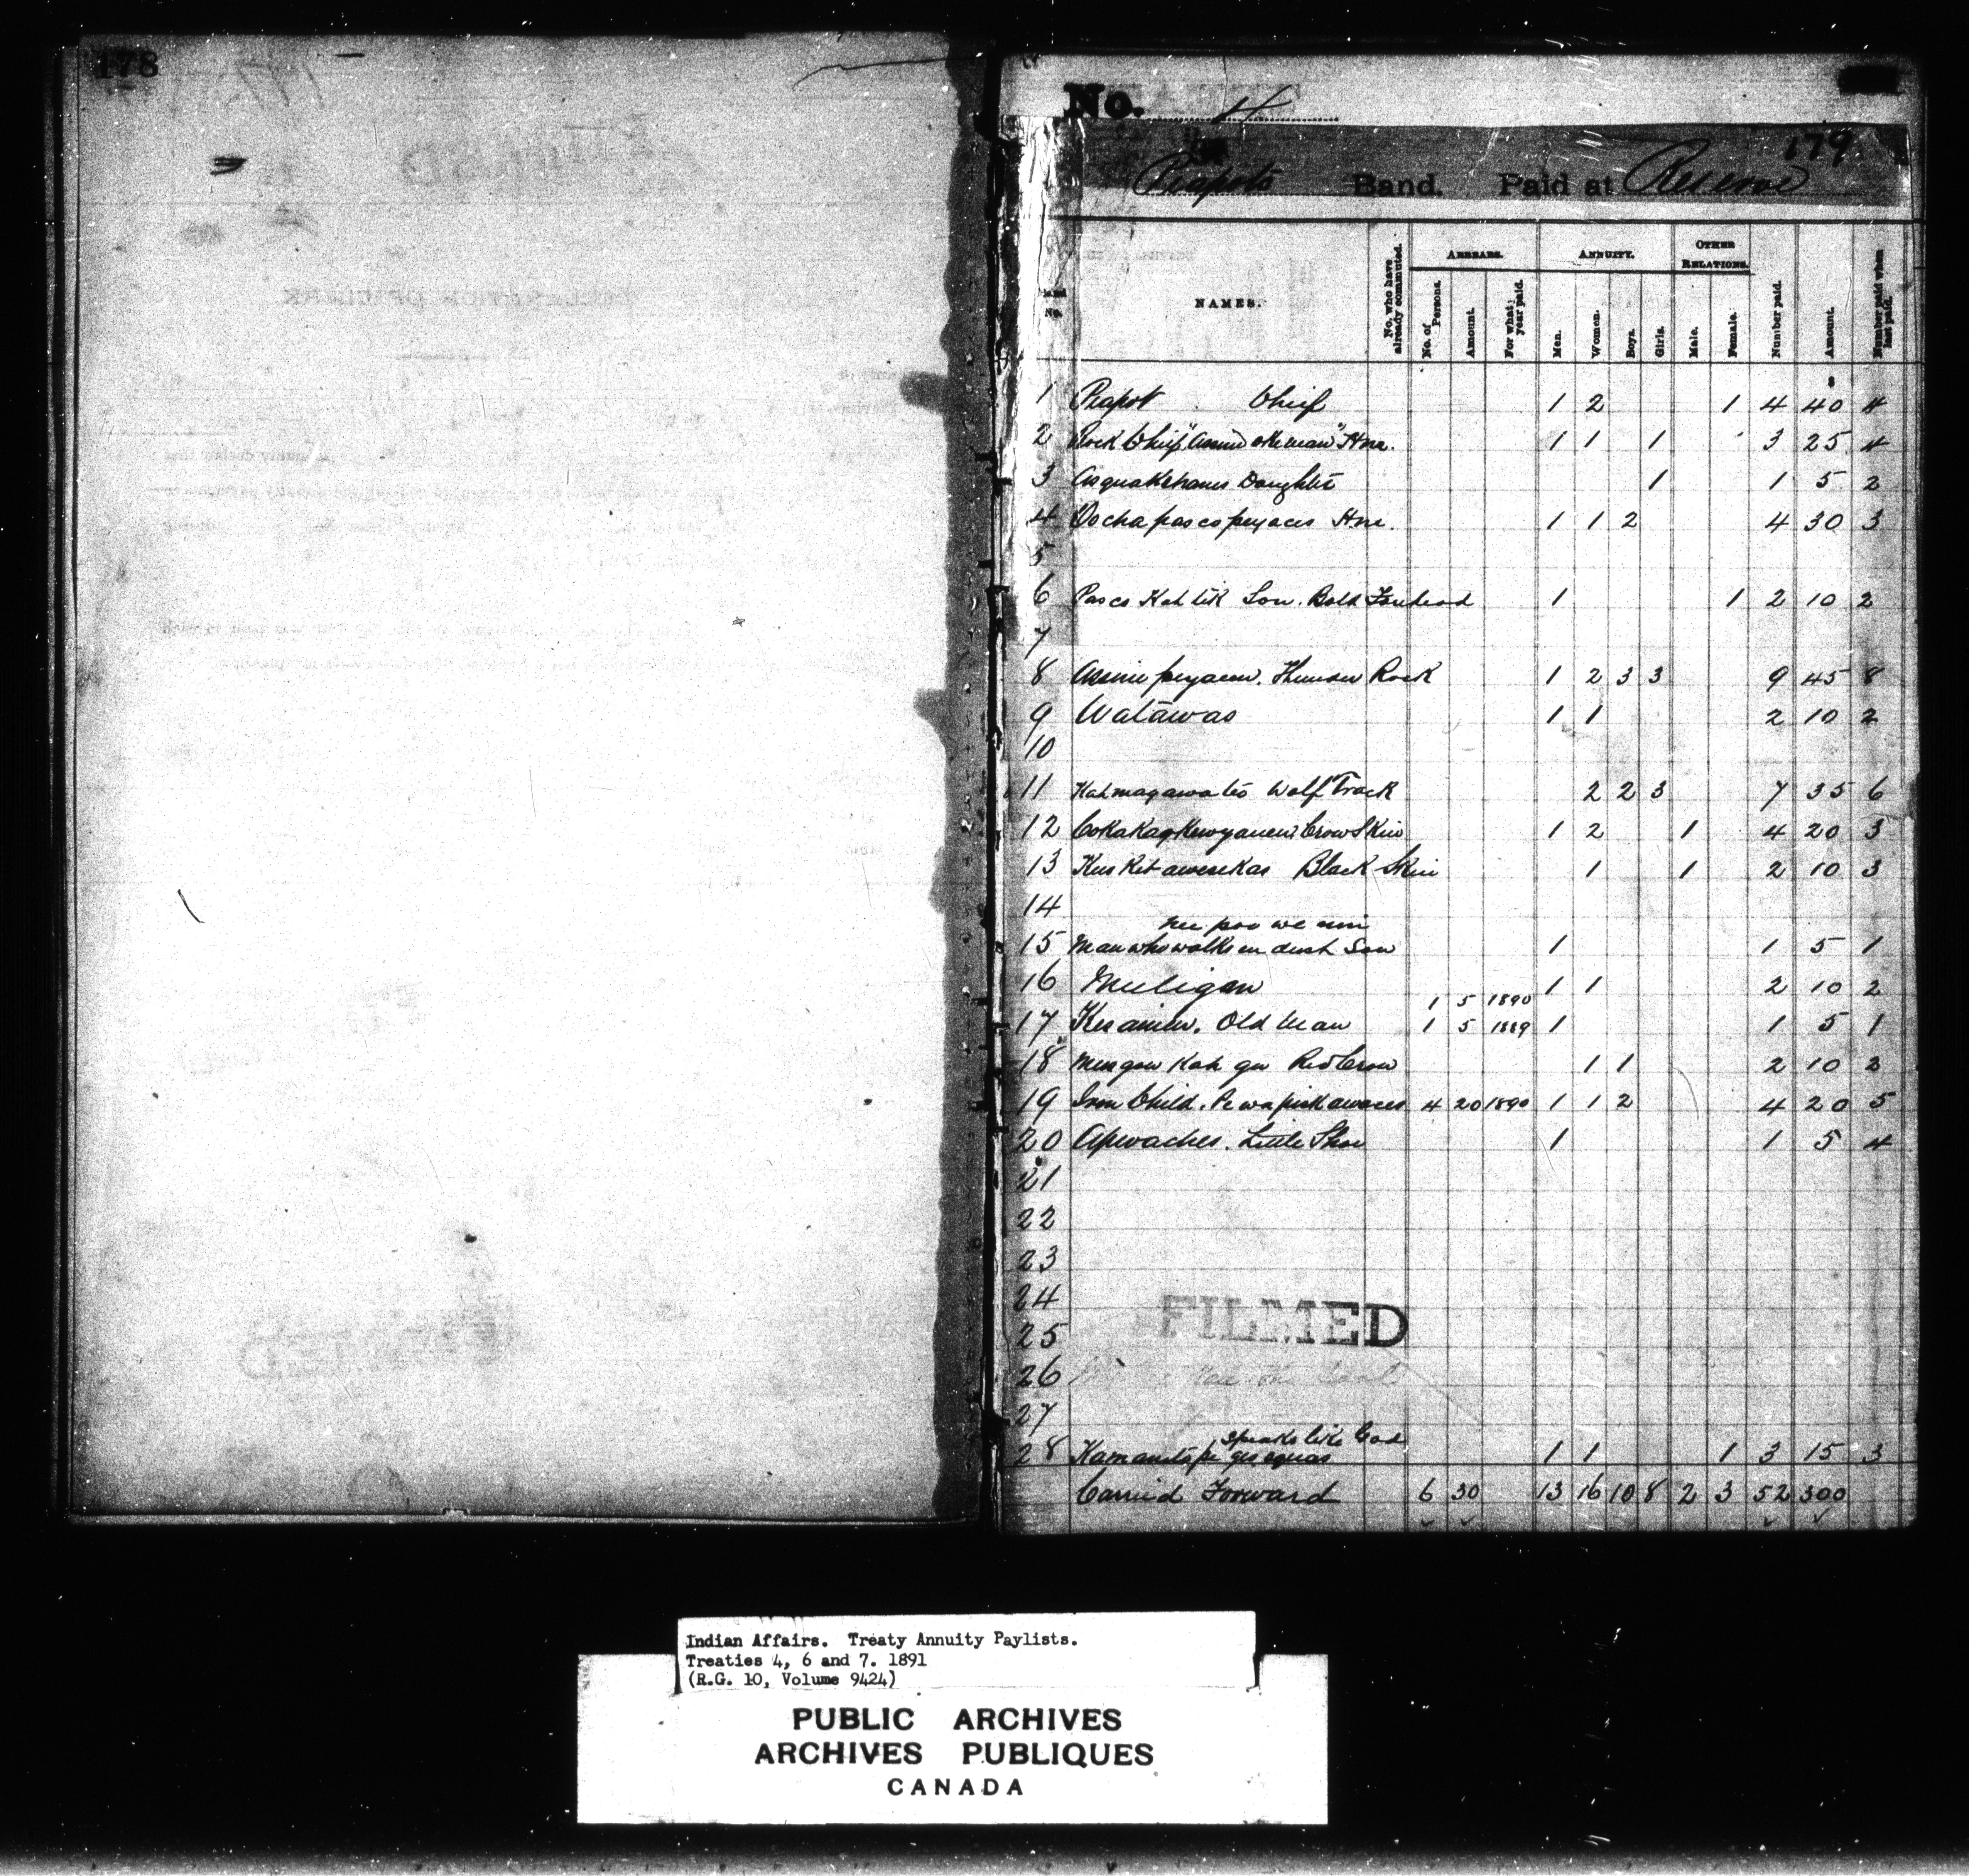 178
No. 4
179
Piapots Band. Paid at Reserve
No.
NAMES.
No. who have already commuted.
ARREARS.
No. of Persons.
Amount.
For what year paid.
ANNUITY.
Men.
Women.
Boys.
Girls.
OTHER RELATIONS.
Male.
Female.
Number paid.
Amount.
Number paid when last paid.
1 Piapot Chief 1 2 1 4 40 4
2 Rock Chief Hm. 1 1 1 3 25 4
3 Asquakehanis Daughter 1 1 5 2
4 Ochapascopeyaces Hm. 1 1 2 4 30 3
5
6 Pasco Kah tik Son. Bald Forehead 1 1 2 10 2
7
8 Assinie peyacew. Thunder Rock 1 2 3 3 9 45 8
9 Watawas 1 1 2 10 2
10
11 Kahmagawates Wolf Track 2 2 3 7 35 6
12 Crow Skin 1 2 1 4 20 3
13 Kuskitawesekas Black Skin 1 1 2 10 3
14
nee poo we nin
15 Man who walks in dusk Son 1 1 5 1
16 Muligan 1 1 2 10 2
1 5 1890
17 Kesainew. Old Man 1 5 1889 1 1 5 1
18 Mengow Kah gu Red Crow 1 1 2 10 2
19 Iron Child. Pewapiskawaces 4 20 1890 1 1 2 4 20 5
20 Apwaches. Little Shoe 1 1 5 4
21
22
23
24
FILMED
25
26
27
speaks like God
28 1 1 1 3 15 3
Carried Forward 6 30 13 16 10 8 2 3 52 300
Indian Affairs. Treaty Annuity Paylists.
Treaties 4, 6 and 7. 1891
(R.G. 10, Volume 9424)
PUBLIC ARCHIVES
ARCHIVES PUBLIQUES
CANADA